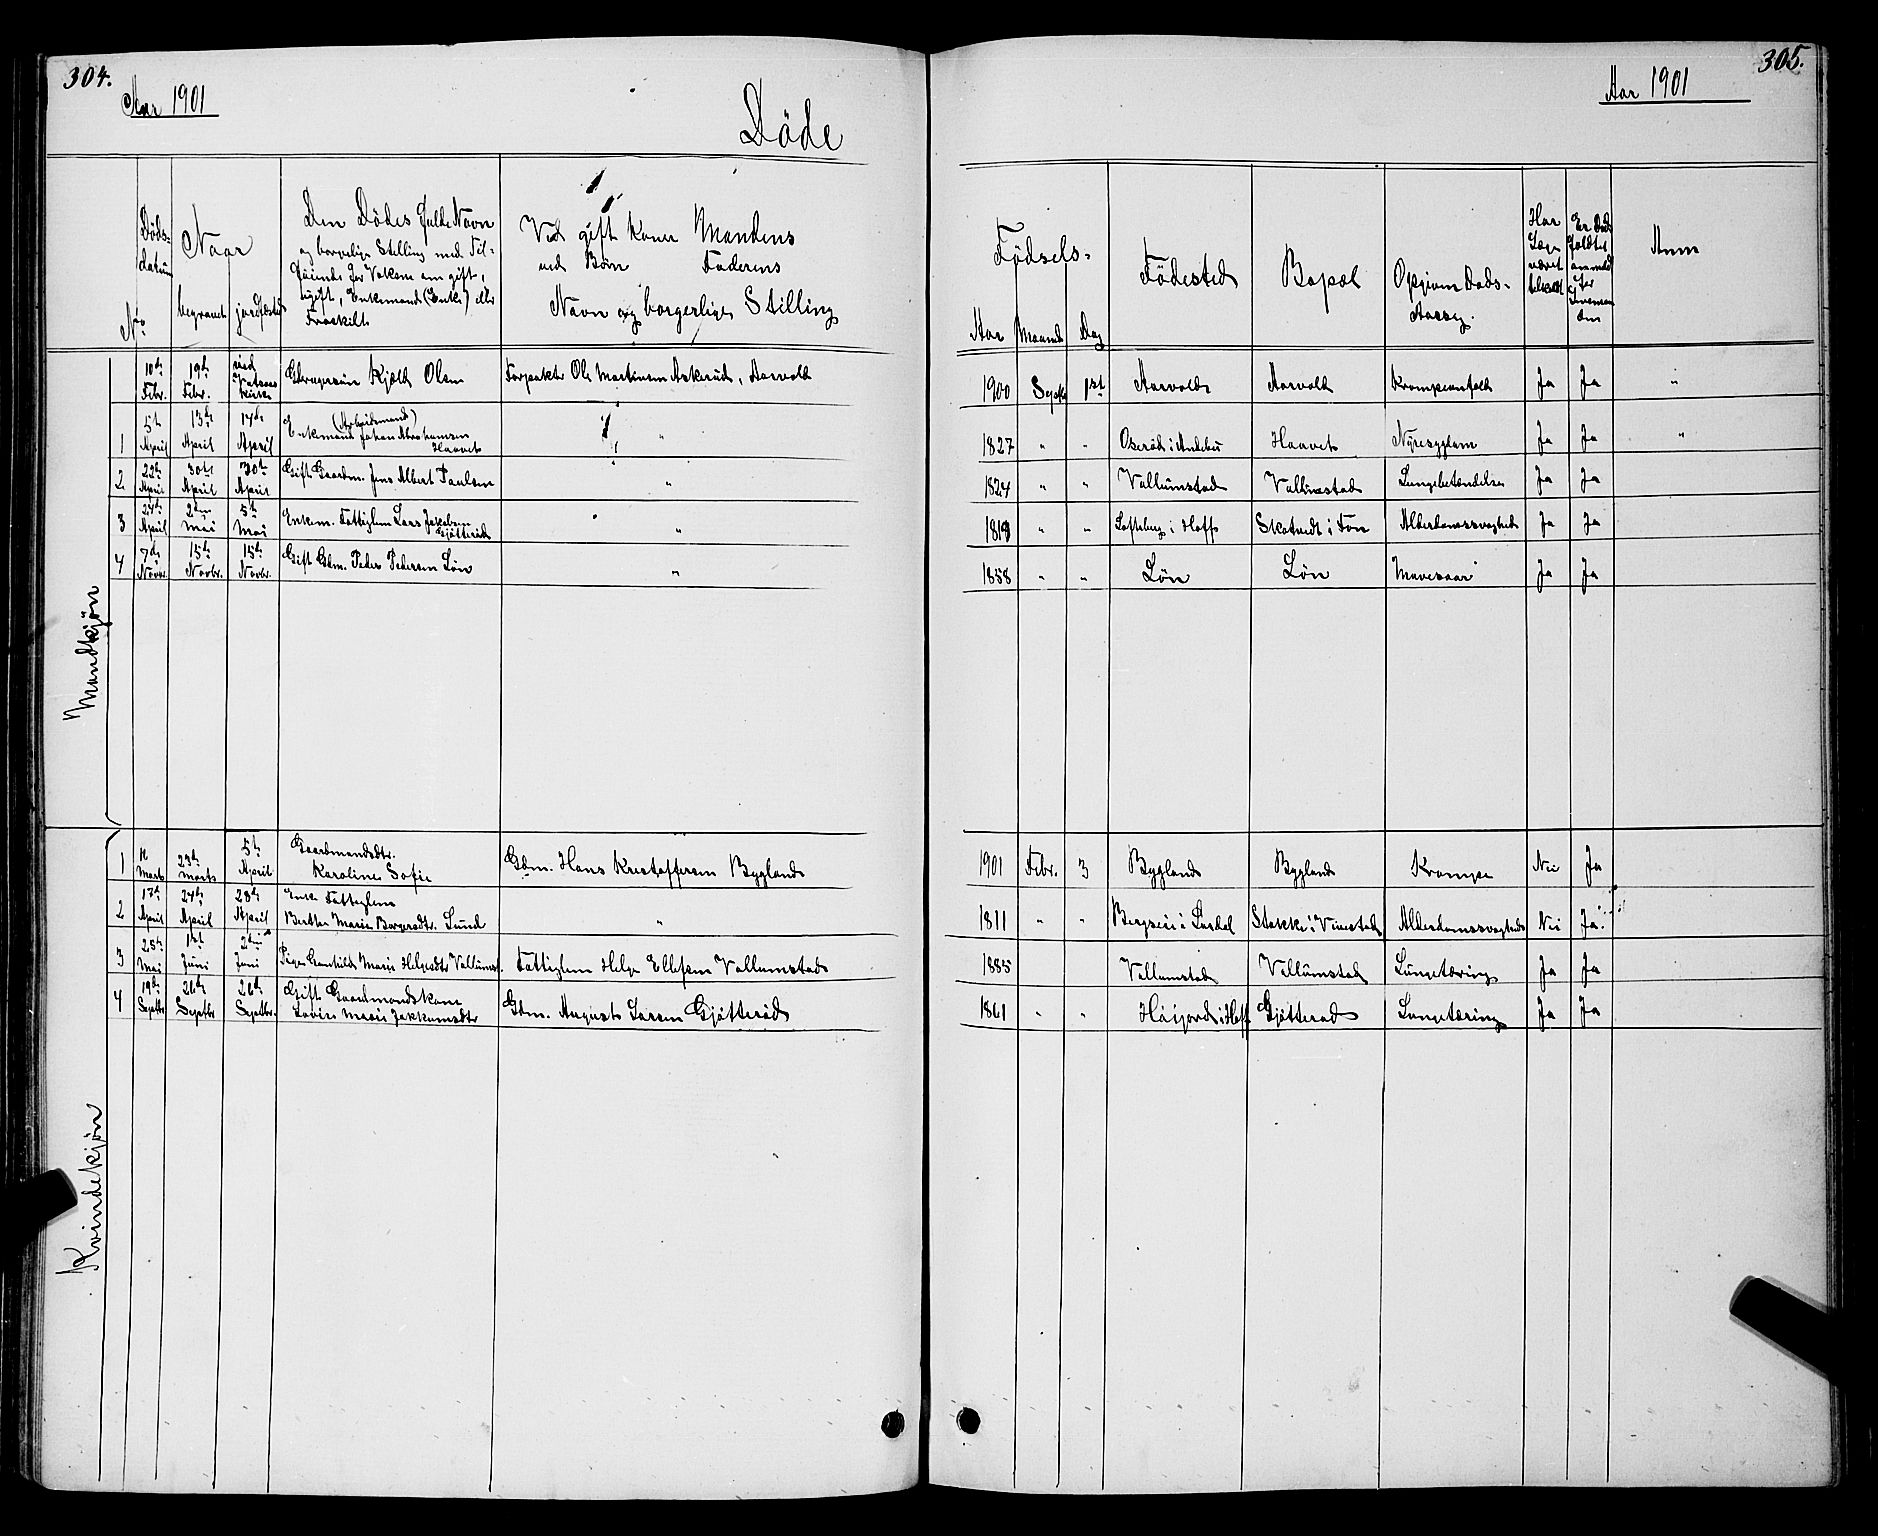 304.
Aar 1901
Döde
305.
Aar 1901
No
Döds-
datum
Naar
begravet
jordfæstet
Den Dödes fulde Navn
og borgerlige Stilling med Til-
föiende for Voksne om gift,
ugift, Enkemand (Enke) eller
Fraskilt
Ved gift Koner Mandens
ved Börn Faderens
Navn og borgerlige Stilling
Födsels-
Aar Maaned Dag
Födested
Bopæl
Opgiven Döds-
Aarsag.
Har
Læge
været
tilkaldt
Er Döds
faldet
anmeldt
for
Anm
Mandkjøn
10de Febr. 19de Febr. ved
Kirke
Gbrugersön Kjeld Olsen Forpakter Ole Martinsen Askerud, Aarvold 1900 Septbr 1st Aarvold Aarvold Krampeanfald Ja Ja "
1 5te April 13de April 17de April Enkemand (Arbeidsmand) Johan Abrahamsen
Haavet " 1827 " " Oserød i Andebu Haavet Nyresygdom Ja Ja "
2 22de April 30te April 30te April Gift Gaardm. Jens Albert Paulsen " 1824 " " Vallumstad Vallumstad Lungebetændelse Ja Ja
3 24de April 2den Mai 5te Mai Enkem. Fattiglem Lars Jakobsen
Gjötteröd " 1818 " " i Hoff i Fon Alderdomssvaghed Ja Ja
4 7de Novbr. 15de Novbr. 15de Novbr. Gift Gdm. Peder Pedersen Løn " 1858 " " Løn Løn Mavesaar Ja Ja
Kvindekjøn
1 Marts 23de Marts 5te April Gaardmandsdtr.
Karoline Sofie Gdm. Hans Kristoffersen Bygland 1901 Febr. 3 Bygland Bygland Krampe Nei Ja
2 17de April 24de April 28de April Enke Fattiglem
Berthe Marie Borgersdtr. Lund " 1811 " " i Lardal Stokke i Vivestad Alderdomssvaghed Nei Ja
3 25te Mai 1st Juni 2den Juni Pige Gunhild Marie Helgesdtr Vallumst. Fattiglem Helge Ellefsen Vallumstad 1885 Vallumstad Vallumstad Lungetæring Ja Ja
4 19de Septbr 26de Septbr 26de Septbr. Gift Gaardmandskone
Lovise Marie Jokkumsdtr Gdm. August Larsen Gjötteröd 1861 " " Höijord i Hoff Gjötteröd Lungetæring Ja Ja